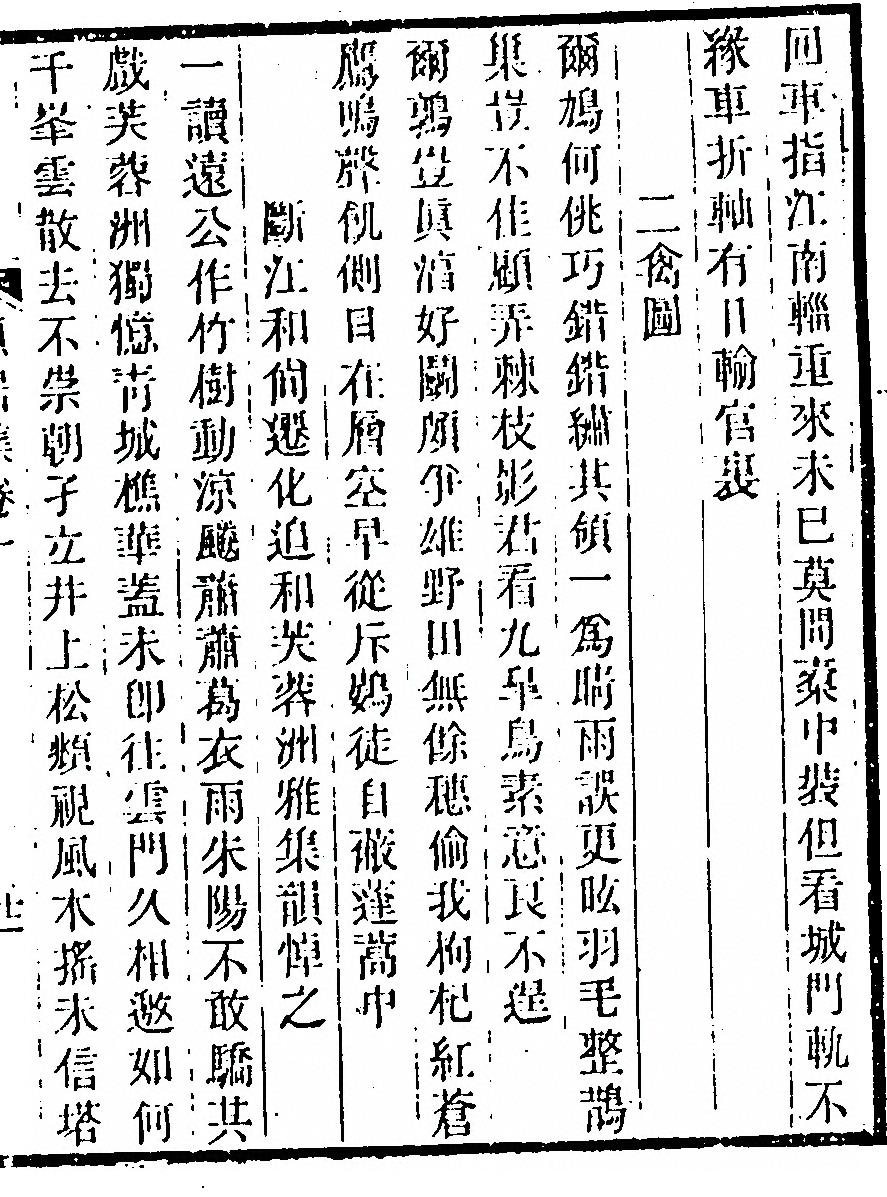 回車指江南輜重來未已莫問橐中裝但看城門軌不
緣車折軸有日輸官裏
二禽圖
爾鳩何佻巧錯錯繡其領一爲晴雨誤更眩羽毛整鵲
巢豈不佳顧弄棘枝影君看九皐鳥素意良不逞
爾鶉豈眞湻好鬭頗爭雄野田無餘穗偷我枸杞紅蒼
鷹鳴聲飢側目在層空早從斥鷃徒自蔽蓬蒿中
斷江和尙遷化追和芙蓉洲雅集韻悼之
一讀遠公作竹樹動涼飈蕭蕭葛衣雨朱陽不敢驕共
戲芙蓉洲獨憶靑城樵華蓋未卽往雲門久相邀如何
千峯雲散去不崇朝孑立井上松頫視風木搖未信塔
集卷一